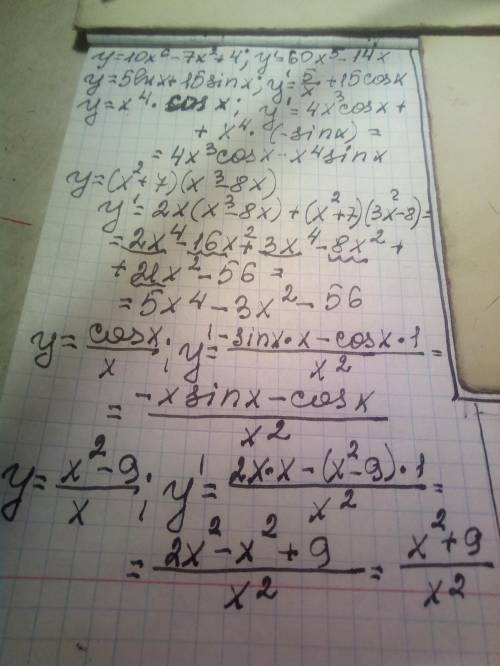 y=10x⁶-7x²+4; y'=60x⁵-14x
y=5lnx+15sinx; y'=5/x+15cosx
y=x⁴·cosx; y'=4x³cosx+
+x⁴·(-sinx)=
=4x³cosx-x⁴sinx
y=(x²+7)(x³-8x)
y'=2x(x³-8x)+(x²+7)(3x²-8)=
=2x⁴-16x²+3x⁴-8x²+
+21x²-56=
=5x⁴-3x²-56
y=cosx/x; y'=(-sinx·x-cosx·1)/x²=
=(-xsinx-cosx)/x²
y=(x²-9)/x; y'=(2x·x-(x²-9)·1)/x²=
=(2x²-x²+9)/x²=(x²+9)/x²